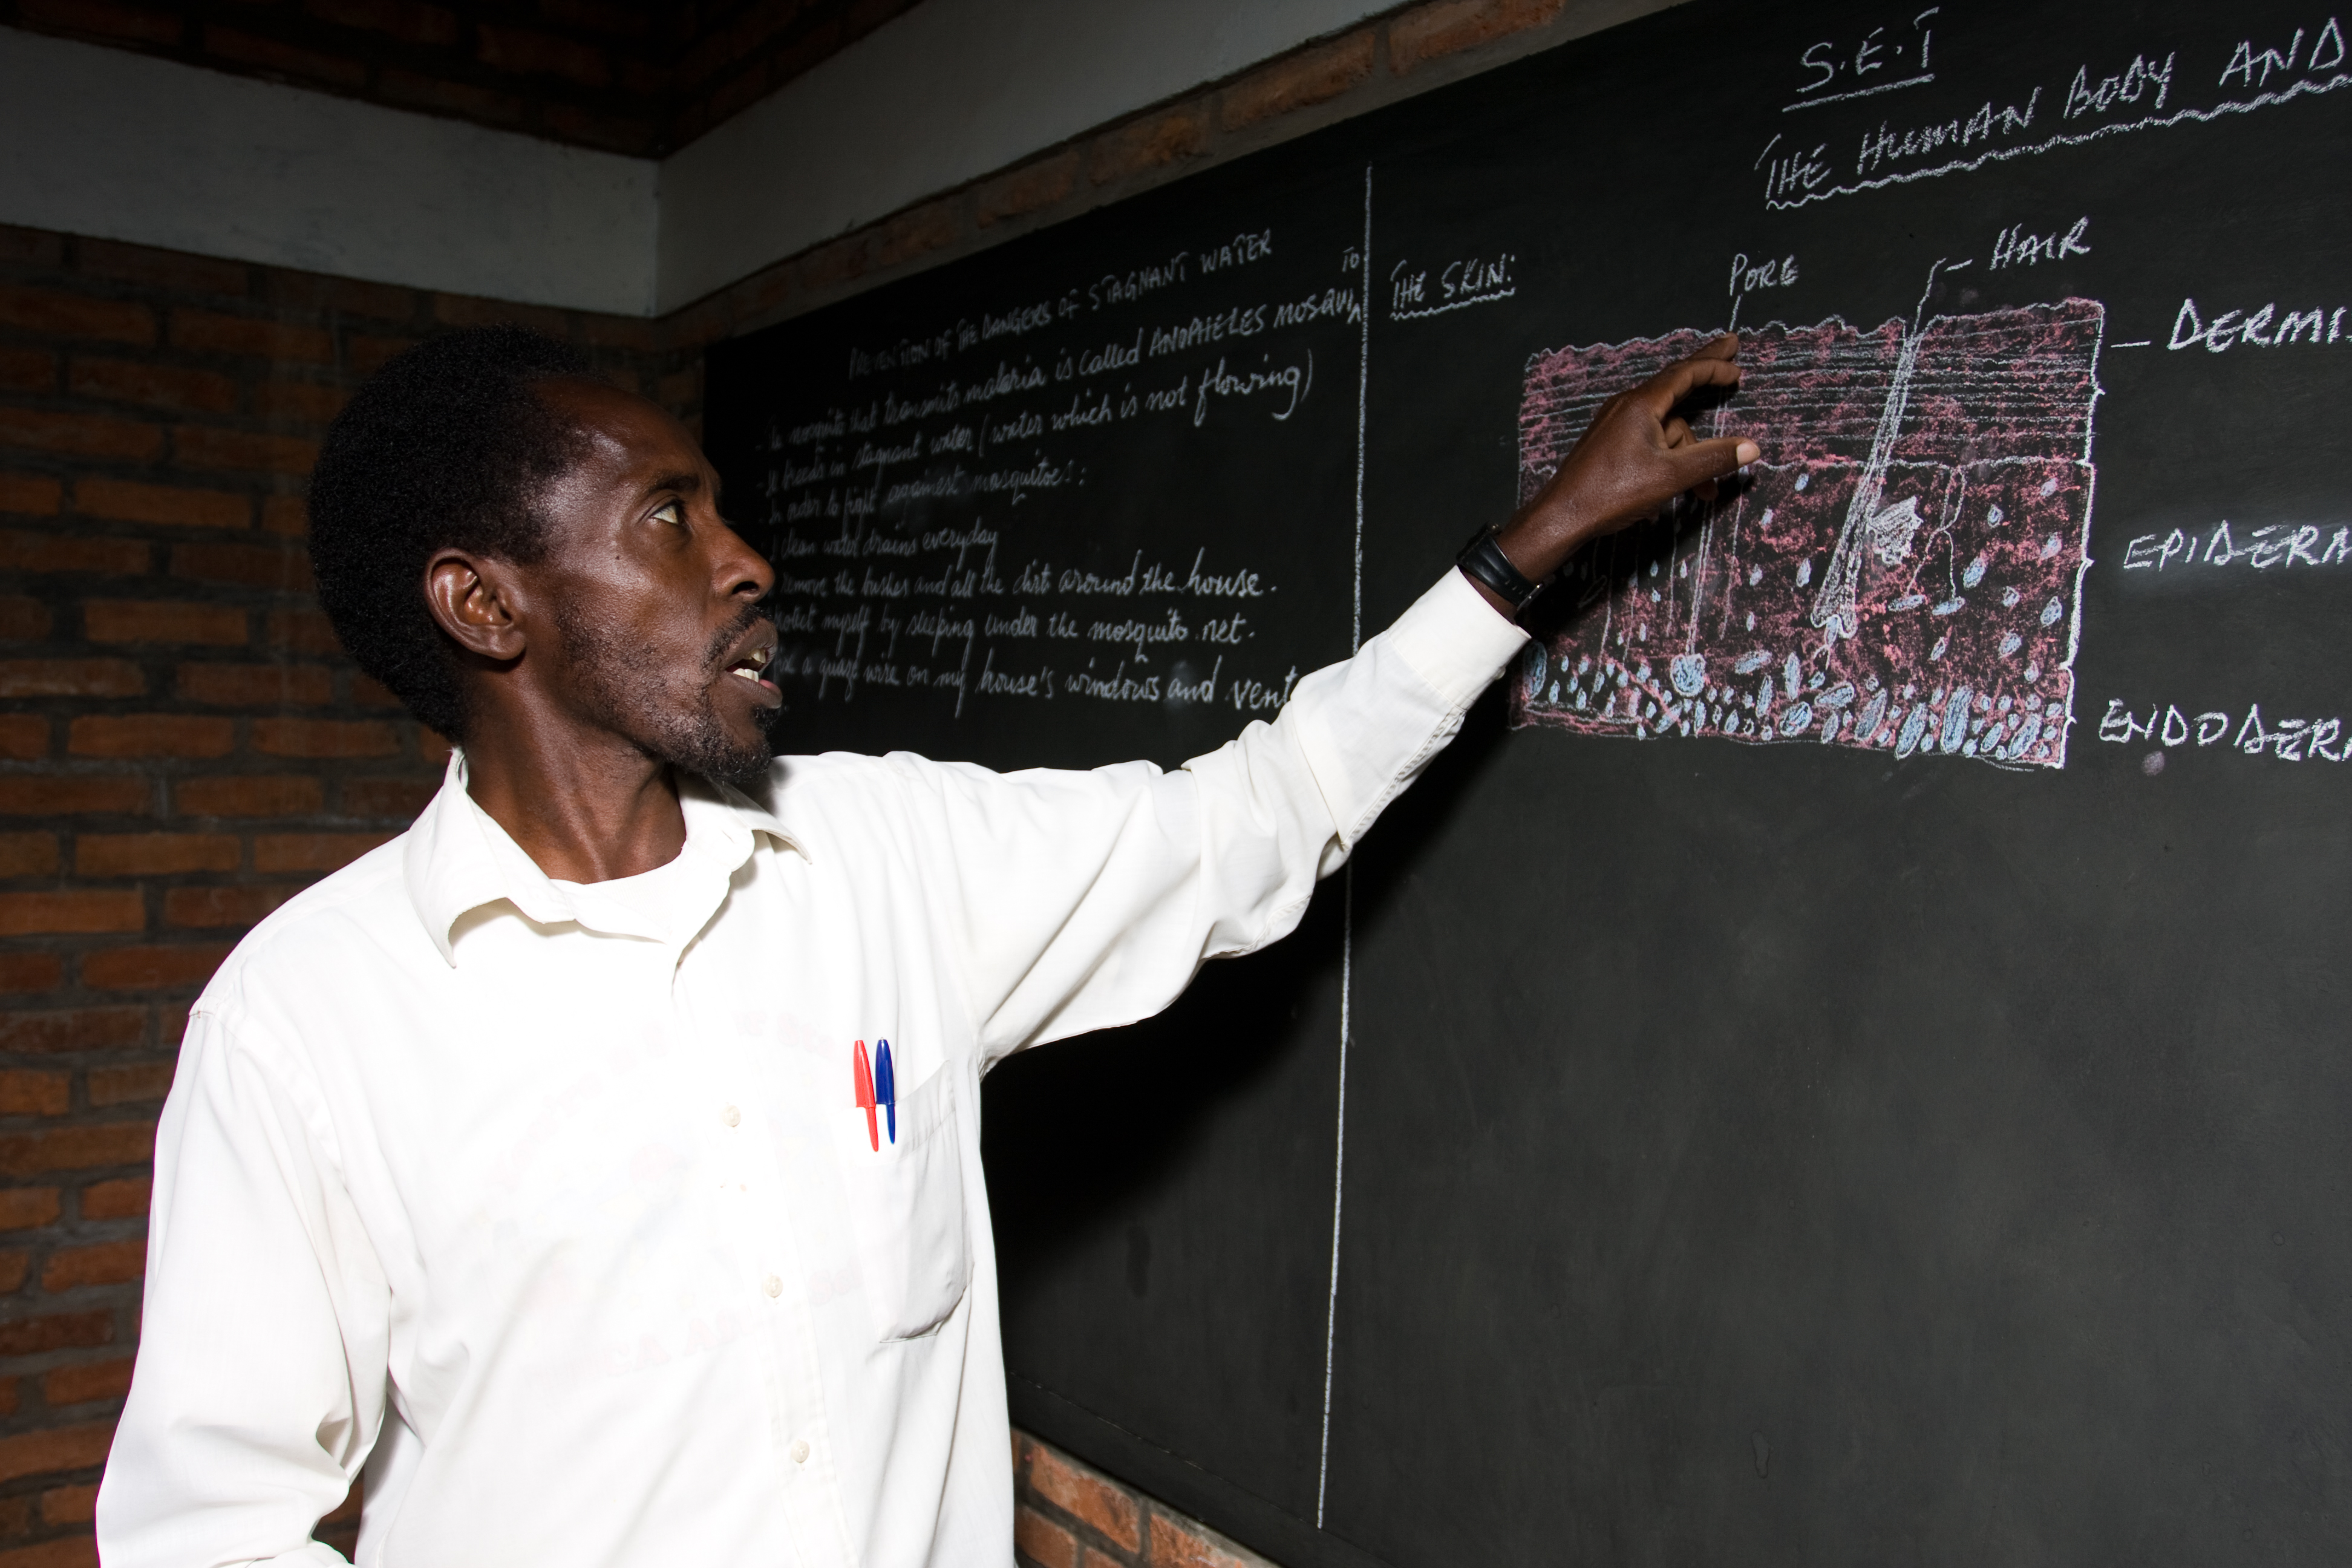 PREVENTION OF THE DANGERS OF STAGNANT WATER
mosquito that transmits malaria is called ANOPHELES MOSQUITO
It breeds in stagnant water (water which is not flowing)
In order to fight against mosquitoes:
clean water drains everyday
remove the bushes and all the dirt around the house.
myself by sleeping under the mosquito net.
a gauze wire on my house's windows and vent
S.E.T
THE HUMAN BODY AND
THE SKIN:
PORE
HAIR
- DERMI
EPIDERM
ENDODER